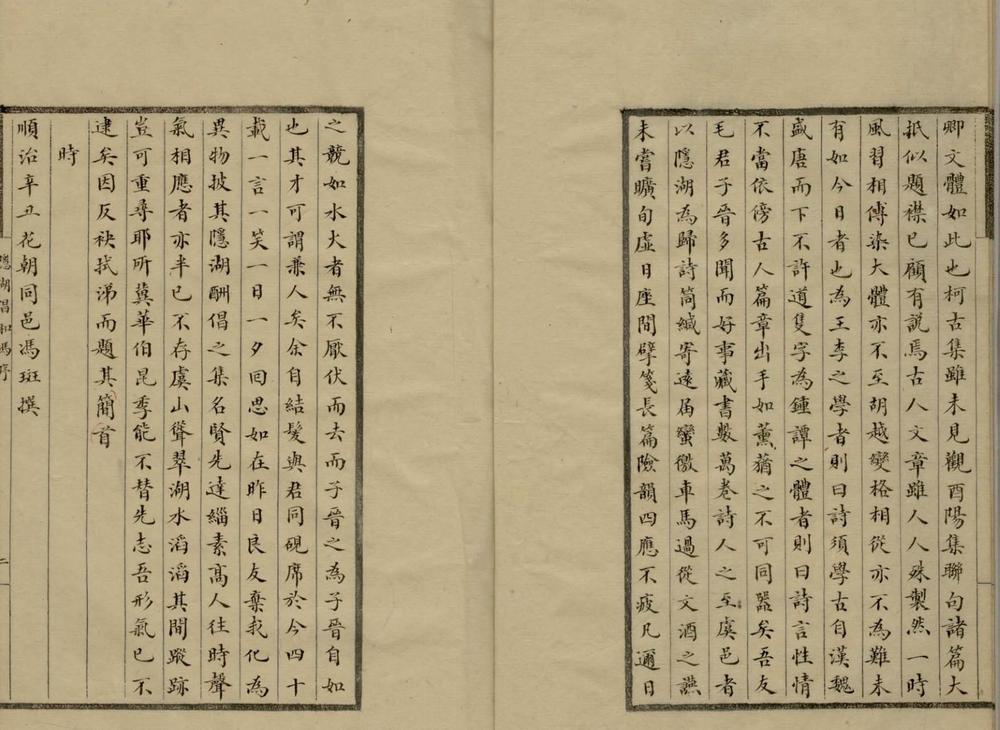 卿文體如此也柯古集雖未見觀酉陽集聯句諸篇大
抵似題襟已顧有說焉古人文章雖人人殊製然一時
風習相傳染大體亦不至胡越變格相從亦不為難未
有如今日者也為王李之學者則曰詩須學古自漢魏
盛唐而下不許道隻字為鍾譚之體者則曰詩言性情
不當依傍古人篇章出手如薰蕕之不可同器矣吾友
毛君子晉多聞而好事藏書數萬卷詩人之至虞邑者
以隱湖為歸詩筒緘寄遠屆蠻徼車馬過從文酒之讌
未嘗曠旬虛日座間擘箋長篇險韻四應不疲凡邇日
之競如水火者無不厭伏而去而子晉之為子晉自如
也其才可謂兼人矣余自結髮與君同硯席於今四十
載一言一笑一日一夕回思如在昨日良友棄我化為
異物披其隱湖酬倡之集名賢先達緇素高人往時聲
氣相應者亦半已不存虞山聳翠湖水滔滔其間蹤跡
豈可重尋耶所冀華伯昆季能不替先志吾形氣已不
逮矣因反袂拭涕而題其簡首
時
順治辛丑花朝同邑馮班撰
隱湖倡和馮序
二